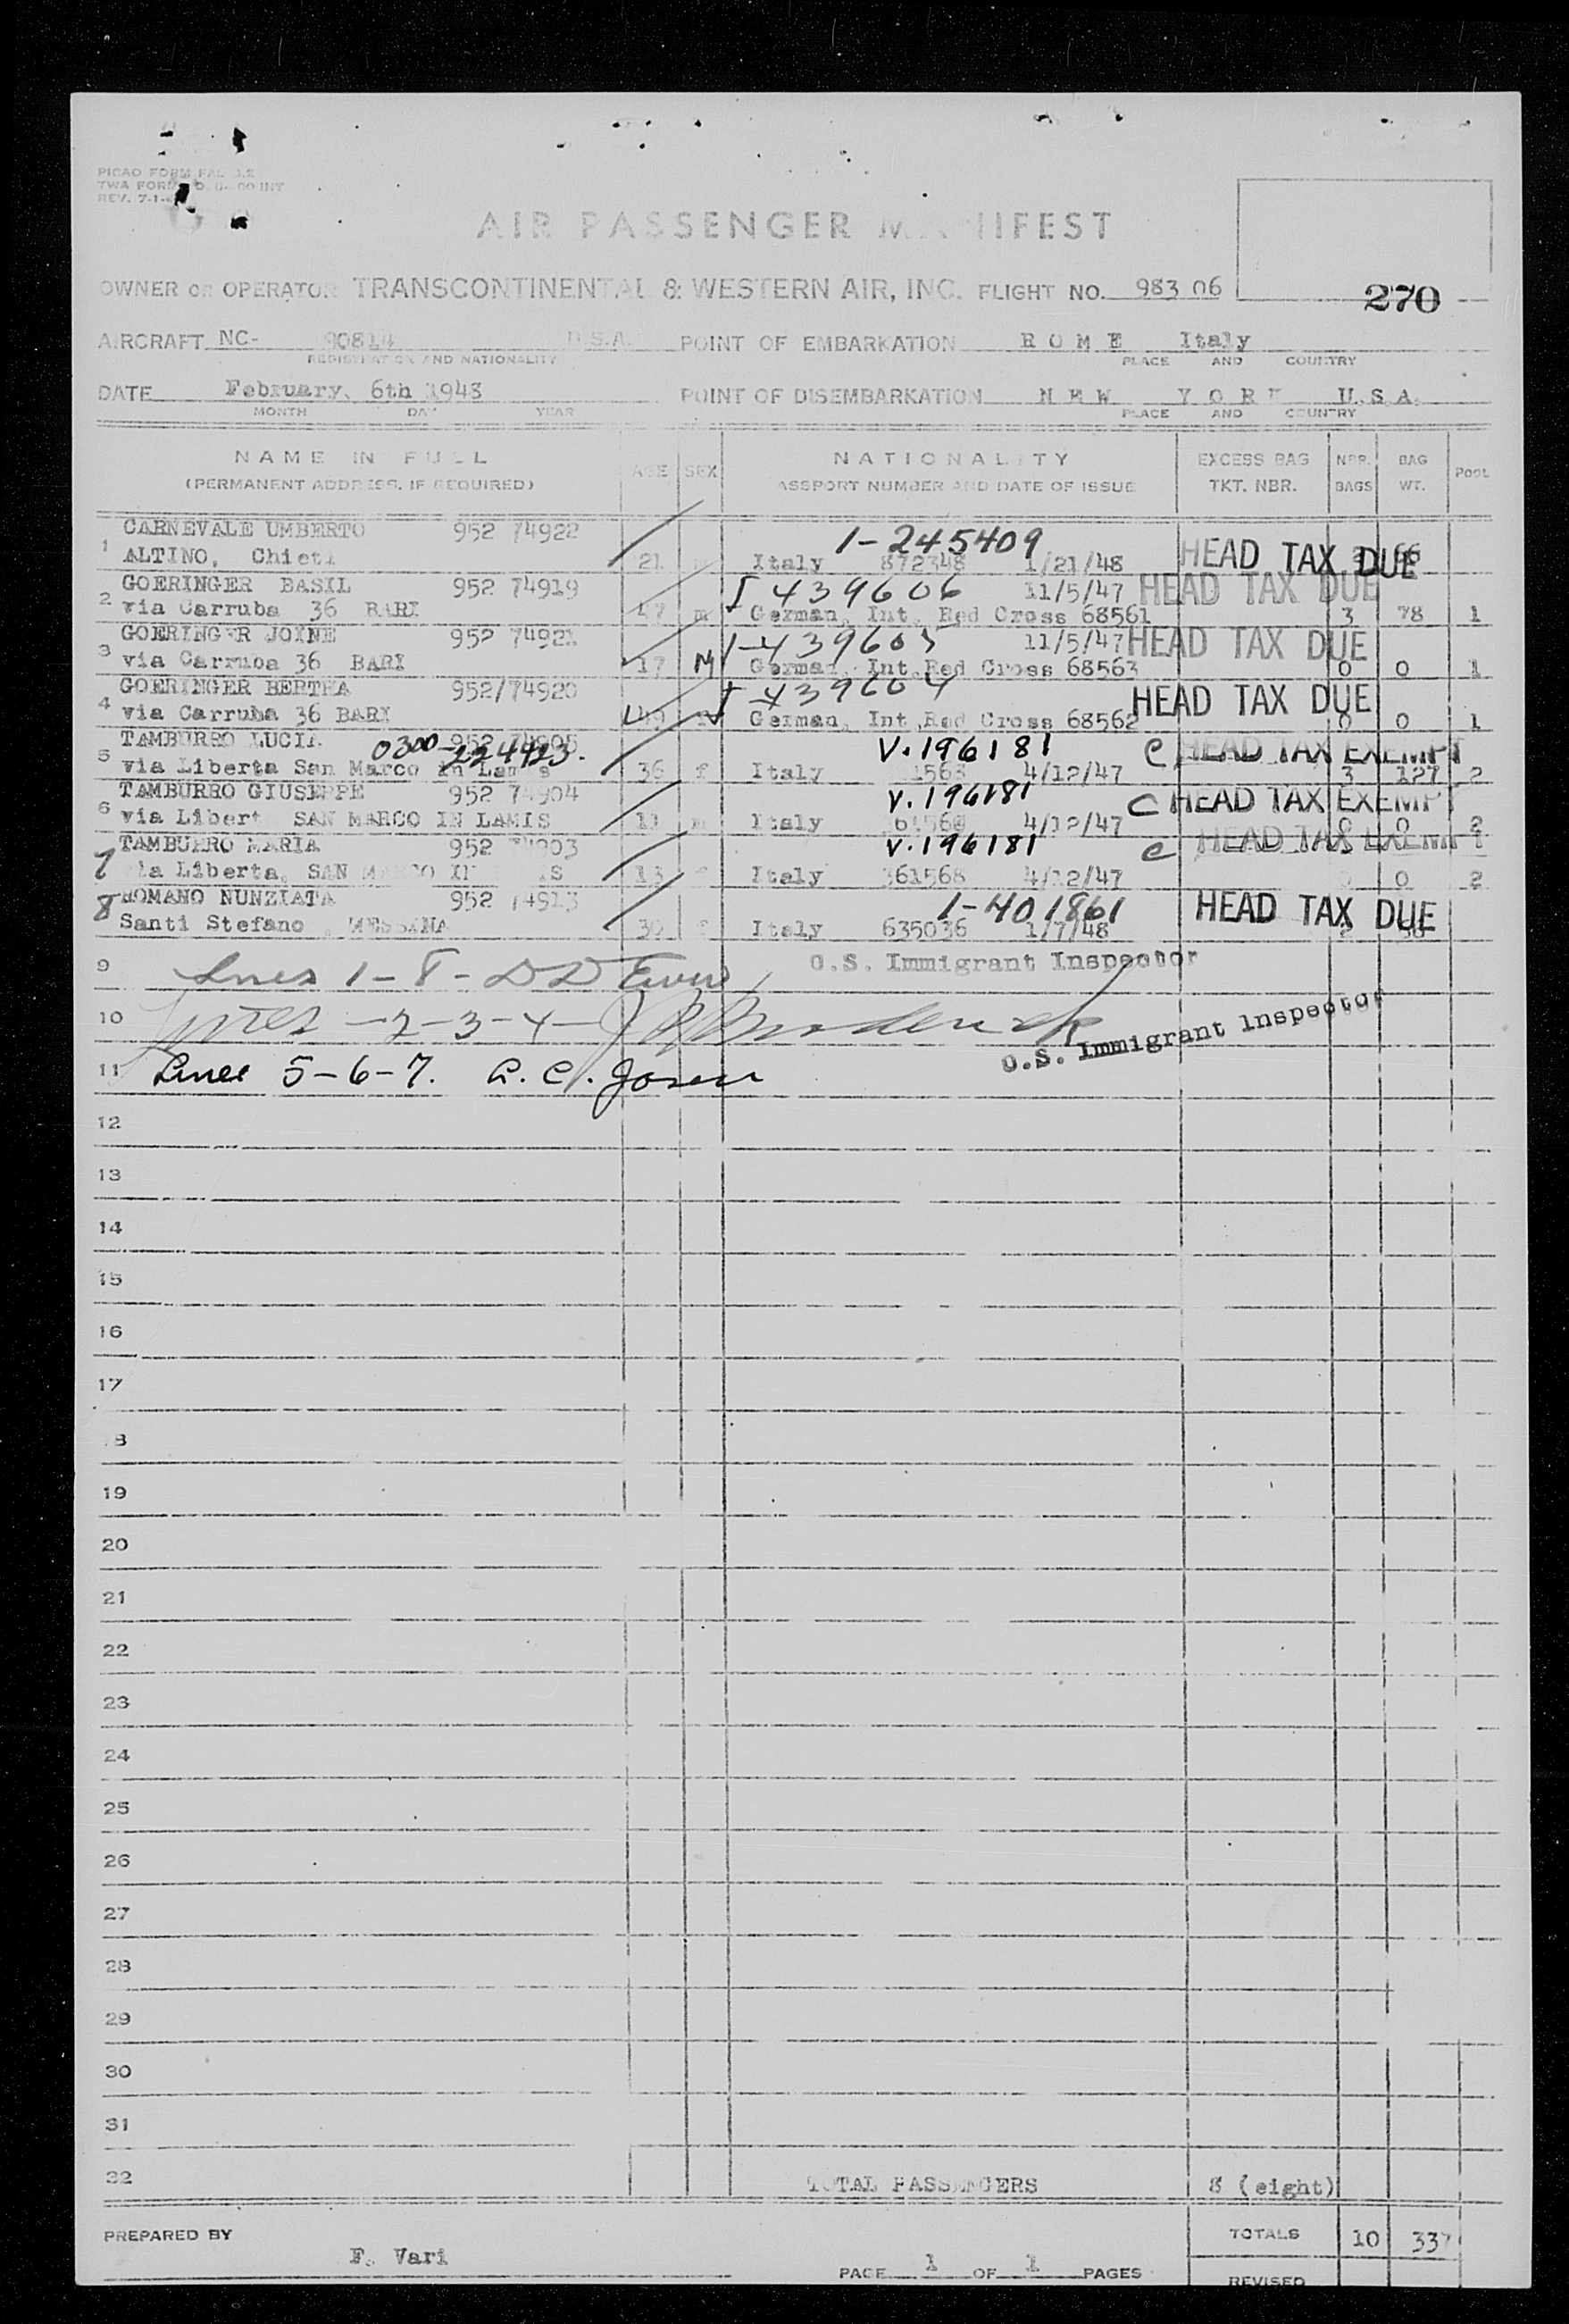 PICAO FORM
TWA FORM
REV. 7-1-
AIR PASSENGER MANIFEST
OWNER OR OPERATOR TRANSCONTINENTAL & WESTERN AIR, INC. FLIGHT NO. 983 06
270
AIRCRAFT NC- 90814 U.S.A. POINT OF EMBARKATION ROME Italy
REGISTRATION AND NATIONALITY PLACE AND COUNTRY
DATE February. 6th 1943 POINT OF DISEMBARKATION NEW YORK U.S.A.
MONTH DAY YEAR PLACE AND COUNTRY
NAME IN FULL AGE SEX NATIONALITY EXCESS BAG NBR. BAG POOL
(PERMANENT ADDRESS, IF REQUIRED) PASSPORT NUMBER AND DATE OF ISSUE TKT. NBR. BAGS WT.
CARNEVALE UMBERTO 952 74922 1-245409
1 ALTINO, Chieti 21 Italy 872348 1/21/48 HEAD TAX DUE 66
GOERINGER BASIL 952 74919 I 439606 11/5/47 HEAD TAX DUE
2 via Carruba 36 BARI 47 m German, Int. Red Cross 68561 3 78 1
GOERINGER JOINE 952 74921 I-439605 11/5/47 HEAD TAX DUE
3 via Carruba 36 BARI 17 M German, Int.Red Cross 68563 0 0 1
GOERINGER BERTHA 952/74920 I-439604 HEAD TAX DUE
4 via Carruba 36 BARI 49 f German, Int.Red Cross 68562 0 0 1
TAMBURRO LUCIA 952 74905 0300-224423. V.196181 C HEAD TAX EXEMPT
5 via Liberta San Marco in Lamis 36 f Italy 4/12/47 3 127 2
TAMBURRO GIUSEPPE 952 74904 V.196181 C HEAD TAX EXEMPT
6 via Libert SAN MARCO IN LAMIS 11 m Italy 4/12/47 0 0 2
TAMBURRO MARIA 952 74903 V.196181 C HEAD TAX EXEMPT
7 via Liberta, SAN MARCO IN LAMIS 13 f Italy 361568 4/12/47 0 0 2
ROMANO NUNZIATA 952 74913 1-401861 HEAD TAX DUE
8 Santi Stefano, MESSINA 30 f Italy 635036 1/7/48 2
9 Lines 1-8- U.S. Immigrant Inspector
10 Lines -2-3-4- U.S. Immigrant Inspector
11 Lines 5-6-7.
12
13
14
15
16
17
18
19
20
21
22
23
24
25
26
27
28
29
30
31
32 TOTAL PASSENGERS 8 (eight)
PREPARED BY F. Vari TOTALS 10 337
PAGE 1 OF 1 PAGES REVISED